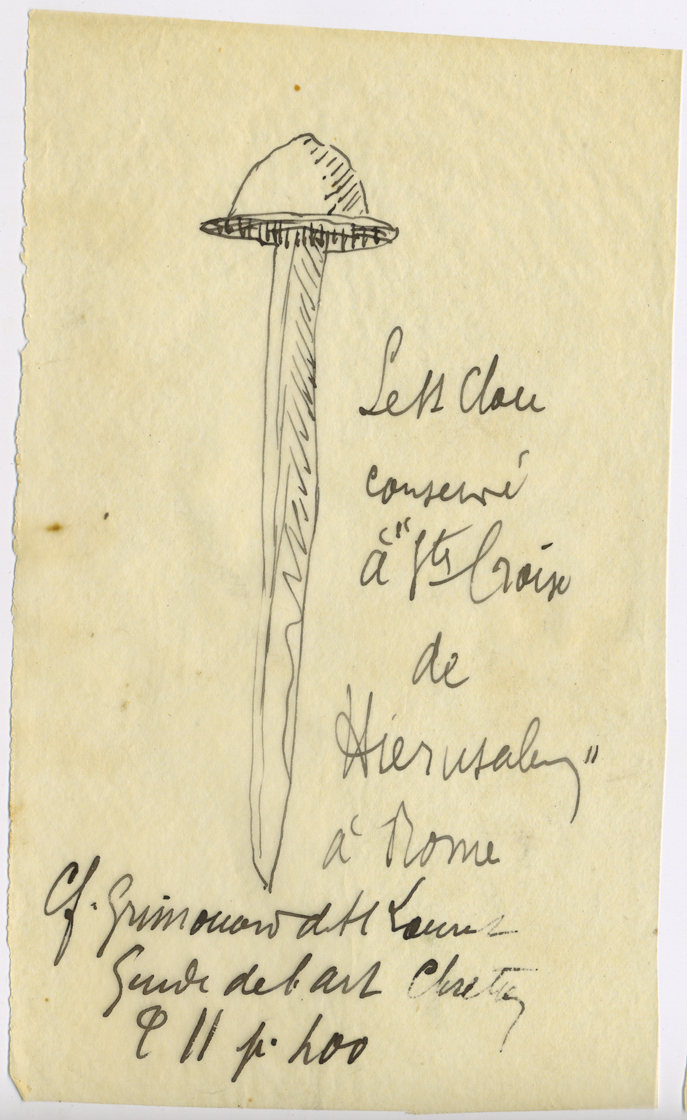 Le St Clou
conservé
à "Ste Croix
de
Hierusalem"
à Rome
Cf. Grimouard de St Laurent
Guide de l'art Chrétien
II p. 400